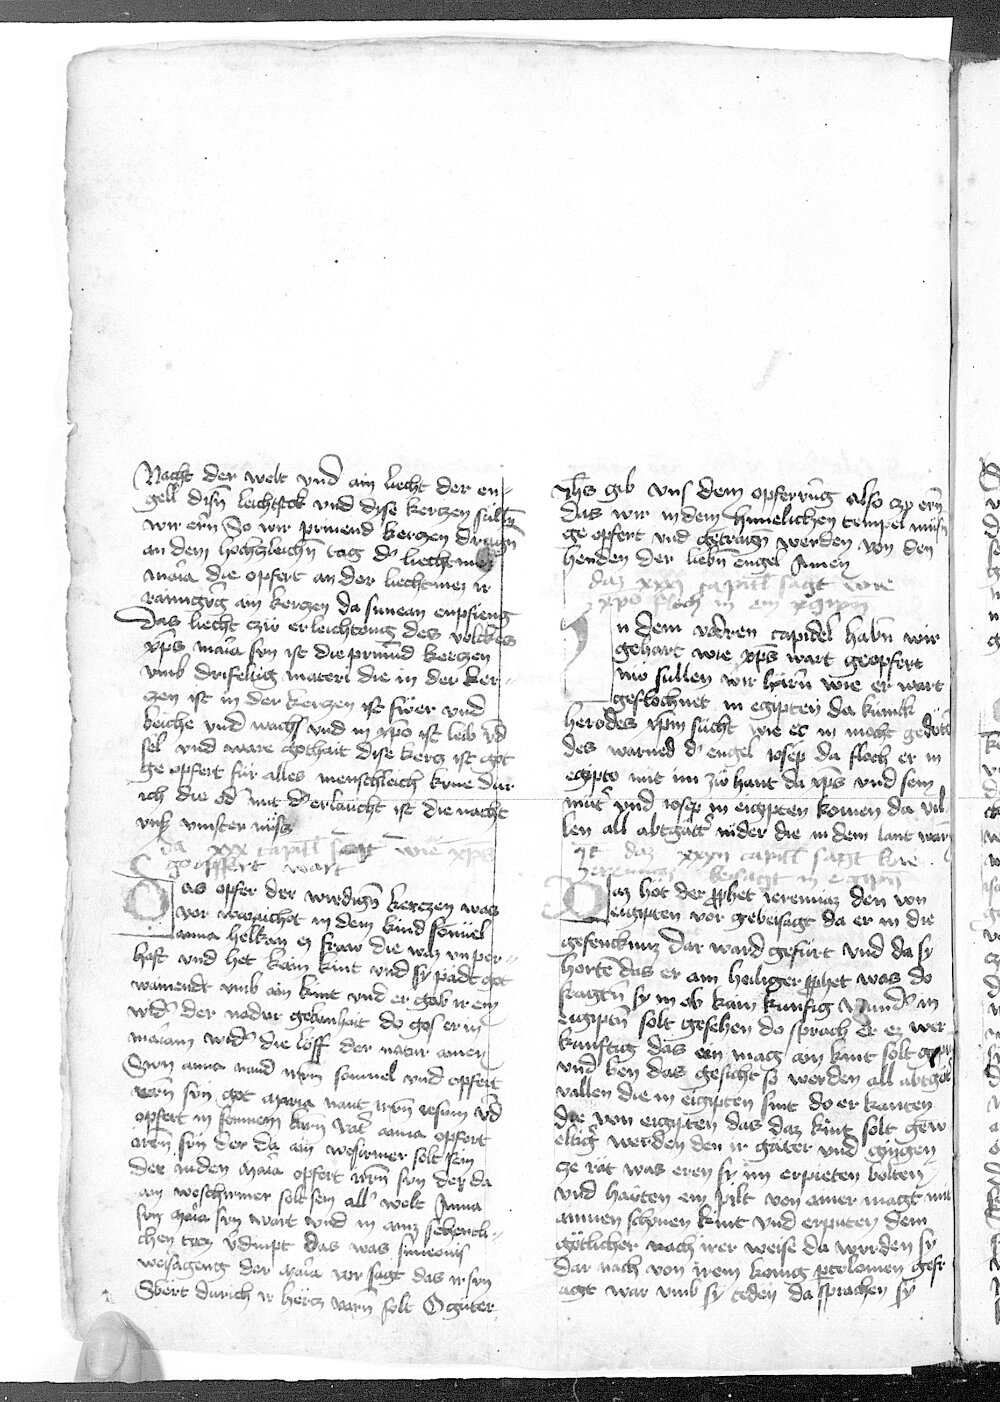 Nacht der welt vnd ain liecht der en-
gell disen leichtstok vnd dise kertzen sullen
wir ern So wir prinend kerzen dragen
an dem hochzleichn tag der liechtmes
maria die opfert an der liechtmes ir
rainigung ain kerzen da simean enpfieng
Das liecht czw erleichtong des volckes
xps maria sun ist die prinend kerczen
vmb drifeltig materi die in der ker-
zen ist in der kerczen ist fiwer vnd
vnd wachs vnd in xpo ist leib vnd
sel vnd ware gothait dise kercz ist got
ge opfert für alles menschleich kvne dur
ich die vnd mit der erlaucht ist die nacht
vnser vinster nüss
da xxx capitl sagt wie xps
geopffert wart
Das opfer der wirdigen kerczen was
vor in dem kind somuel
anna helkan ein fraw die waz vnper-
haft vnd het kain kint vnd sy padt got
wainendt vmb ain kint vnd er gab ir ein
wider der nadur gebonhait do gos er in
mariam wider die löff der natur ainen
Swn anna nand irn somuel vnd opfert
irn sun got maria nant irn iesum vnd
opfert in seinem vater anna opfert
iren sun der da ain weschirmer solt sein
der inden maria opfert irn sun der da
ain weschirmer solt sein aller welt Anna
sun maria sun wart vnd in ainz schentli-
chen tod das was simeonis
weisagung der maria vor sagt das ir sun
Swert durich ir hercz varn solt O güter
Ihs gib vns dem opferung also zu ern
das wir in dem himelichen tempel müssen
ge opfert vnd getragen werden von den
henden der lieben engel Amen
daz xxxi capitll sagt wie
xpo floch in ein egiptn
In dem vodren capidel haben wir
gehört wie xps wart geopfert
nw sullen wir hörn wie er wart
geflochnet in egipten da kunck
herodes xpm sücht wie er in mocht gedöten
des warned der engel iosep da floch er in
egipto mit im zu hant da xps vnd sein
muter vnd iosep in egipten komen da vil-
len all abtgötter nider die in dem lant warn
It daz xxxii capitll sagt wie
Jeremiaz beisagt in egiptn
Daz hot der prophet ieremiaz den von
egipten vor gebeisagt da er in die
gefencknuz dar ward gefürt vnd da sy
horten das er ain heiliger prophet was do
fragten sy in ob kain kunftig wunder in
eigipten solt gesehen do sprach er ez wer
kunftig das ein mag ain kint solt geperen
vnd ben das gesicht so werden all abtgöt
vallen die in eigipten sint do er kanten
die von eigipten das daz kint solt gew
eltig werden den ir göter vnd gingen
ze rät was eren sy im erpieten bolten
vnd hauten ein pilt von ainer magt mit
ainnen schonen kint vnd erputen dem
götlicher nach irer weise da wurden sy
dar nach von irem konig ptolomeu gefr
agt war vmb sy teden da sprachen sy